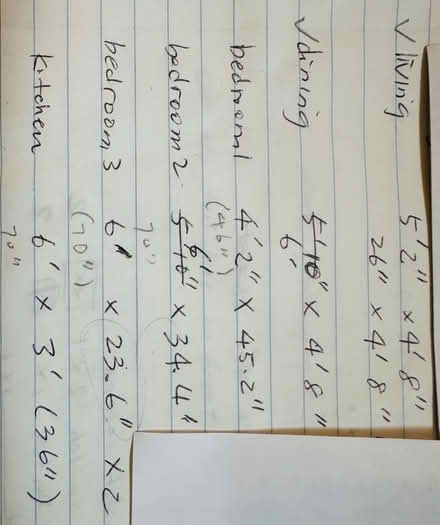 ✓ living 5'2" × 4'8"
26" × 4'8"
✓ dining 5'10" × 4'8"
6'
bedroom1 4'2" × 45.2"
(46")
6'
bedroom2. 5'10" × 34.4"
70"
bedroom3 6' × 23.6" × 2
(70")
kitchen 6' × 3' (36")
70"